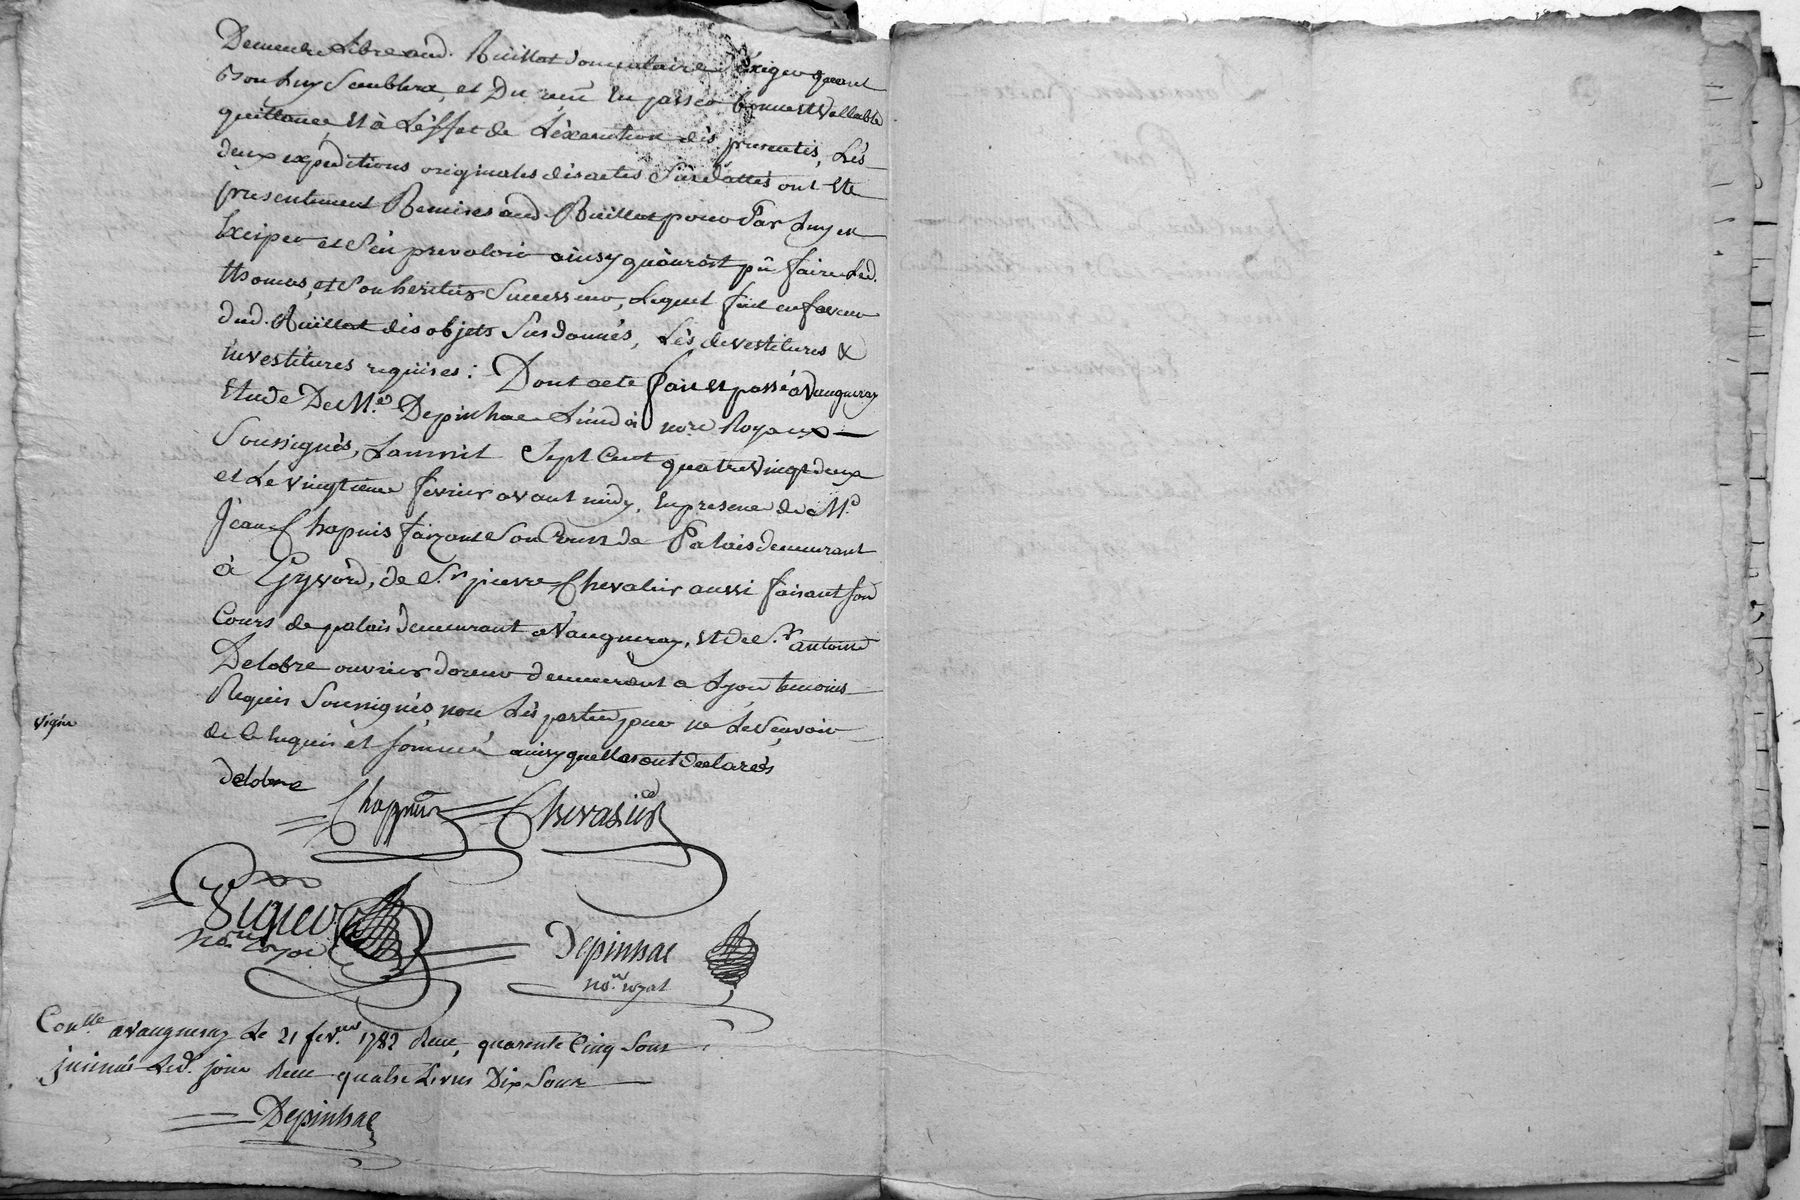 Demeure Libre aud. Ruillat donnataire d'exiger quant
bon Luy Semblera, et Du reçu En passer bonne et Vallable
quittance, Et à L'éffet de L'éxecution dés presentes, Lés
deux expeditions originales dés actes Susdattés ont Eté
presentement Remises aud. Ruillat pour Par Luy en
Exciper et S'en prevaloir ainsy qu'auroit pû faire Led.
thomas, et Son heritier Successeur, Lequel fait en faveur
dud. Ruillat dés objets Susdonnés, Lés devestitures &
investitures requises : Dont acte fait et passé a Vaugneray
Etude De Me. Depinhac L'un dés nore Royaux
Soussignés, L'an mil Sept Cent quatre Vingt deux
et Le Vingtieme fevrier avant midy, En presence de Me.
Jean Chapuis faizant Son Cours de Palais demeurant
à Gyvord, de Sr. pierre Chevalier aussi faisant son
Cours de palais demeurant a Vaugneray, et de Sr. antoine
Delobre ouvrier doreur demeurant a Lyon temoins
Requis Soussignés non Lés parties pour ne Le Sçavoir
vigier
de ce Enquis et sommées ainsy qu'elles ont declarés
delobre
Chappuis Chevalier
Vigier
nore royal
Depinhac
nore. royal
Conllé a Vaugneray Le 21 fevrer. 1782 Recu quarente Cinq Sous
insinué Led. jour Recu quatre Livres Dix Sous
Depinhac